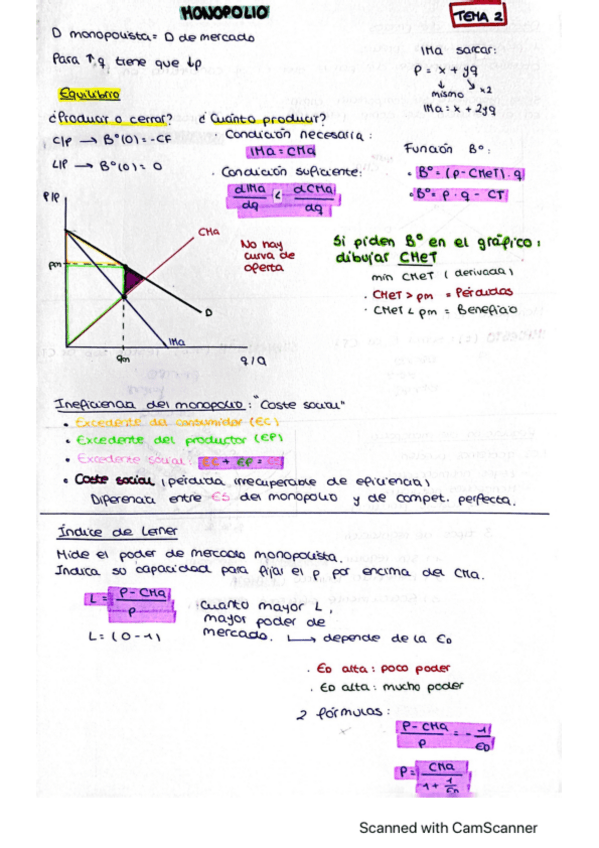 MONOPOLIO
TEMA 2
D monopolista = D de mercado
Para ↑q tiene que ↓p
IMa sacar:
P = x + yq
↓ ↘x2
mismo
IMa: x + 2yq
Equilibrio
¿Producir o cerrar?
C/P → Bº(0) = -CF
L/P → Bº(0) = 0
¿Cuánto producir?
· Condición necesaria:
IMa = CMa
· Condición suficiente:
dIMa/dq < dCMa/dq
Función Bº:
· Bº = (p - CMeT) · q
· Bº = p · q - CT
P/p
CMa
pm
D
IMa
qm
q/Q
No hay
curva de
oferta
Si piden Bº en el gráfico:
dibujar CMeT
min CMeT (derivada)
· CMeT > pm = Pérdidas
· CMeT < pm = Beneficio
Ineficiencia del monopolio: "Coste social"
• Excedente del consumidor (EC)
• Excedente del productor (EP)
• Excedente social: EC + EP = ES
• Coste social (pérdida irrecuperable de eficiencia)
Diferencia entre ES del monopolio y de compet. perfecta.
Índice de Lerner
Mide el poder de mercado monopolista.
Indica su capacidad para fijar el p por encima del CMa.
L = P - CMa / P
L = (0 - 1)
Cuanto mayor L,
mayor poder de
mercado. ↳ depende de la ED
· ED alta: poco poder
· ED alta: mucho poder
2 fórmulas:
P - CMa / P = - 1 / ED
P = CMa / 1 + 1/ED
Scanned with CamScanner